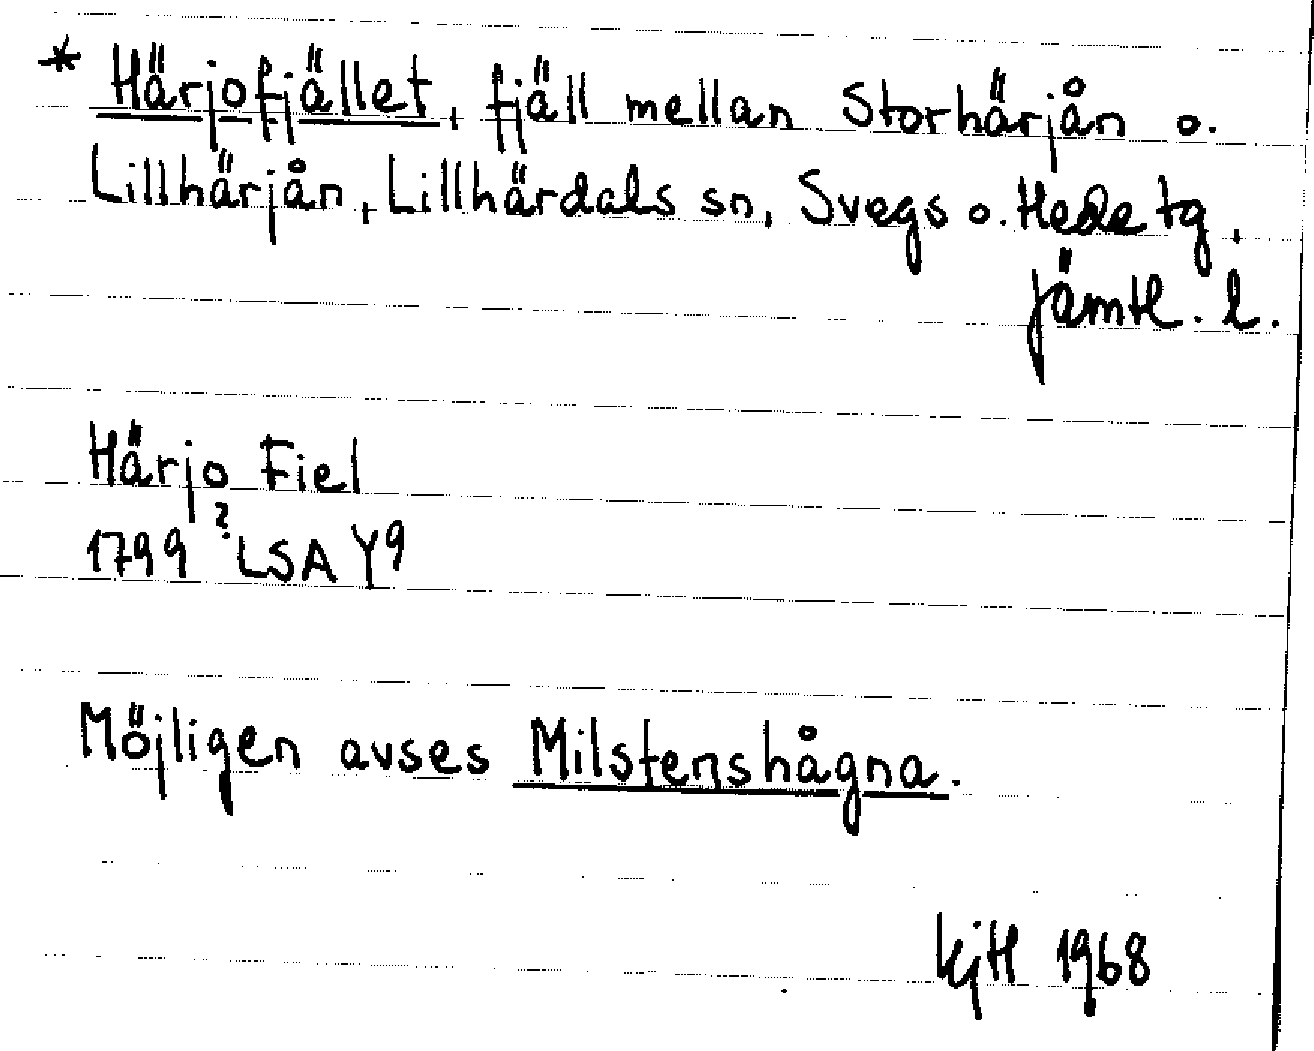 * Härjofjället, fjäll mellan Storhärjån o.
Lillhärjån, Lillhärdals sn, Svegs o. Hede tg,
Jämtl. l.
Härjo Fiel
1799 ? LSA Y9
Möjligen avses Milstenshågna.
1968